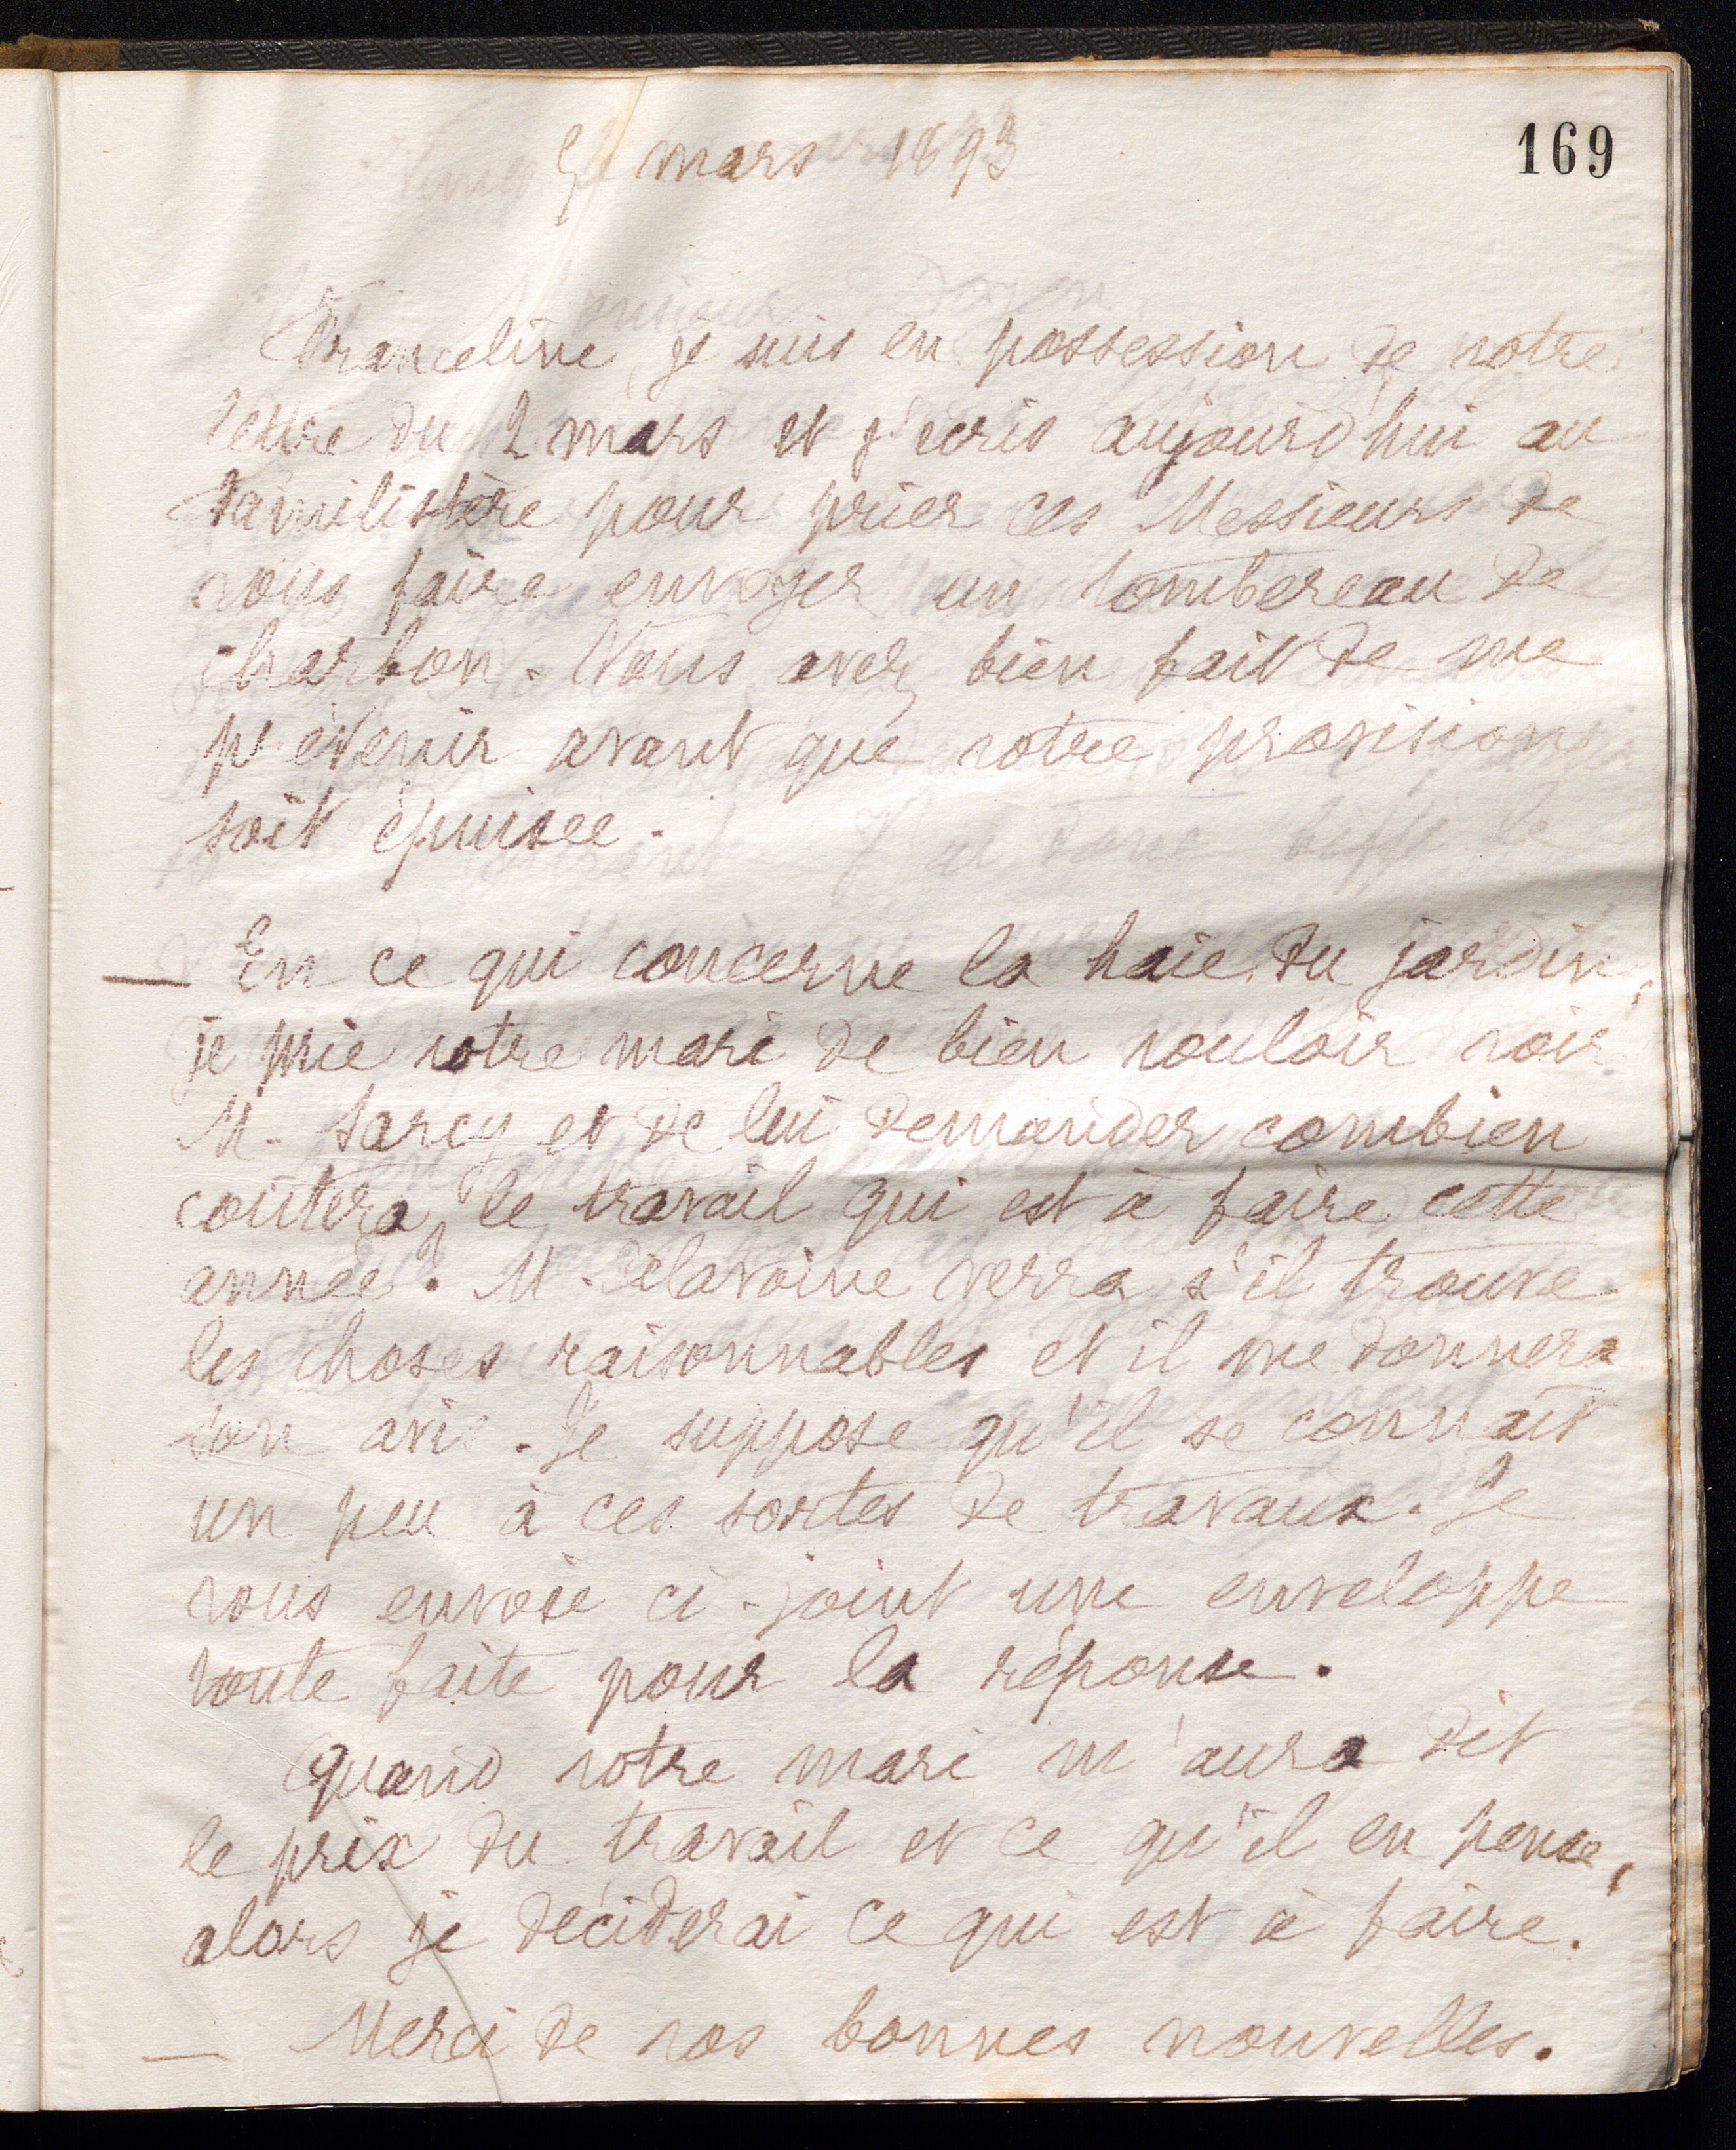 169
5 mars 1893
Franceline, je suis en possession de votre
lettre du 2 mars et j'écris aujourd'hui au
Familistère pour prier ces Messieurs de
vous faire envoyer un tombereau de
charbon. Vous avez bien fait de me
prévenir avant que votre provision
soit épuisée.
— En ce qui concerne la haie du jardin,
je prie votre mari de bien vouloir voir
M. Sarcy et de lui demander combien
coûtera le travail qui est à faire cette
année? M. Delavoine verra s'il trouve
les choses raisonnables et il me donnera
son avis. Je suppose qu'il se connait
un peu à ces sortes de travaux. Je
vous envoie ci-joint une enveloppe
toute faite pour la réponse.
Quand votre mari m'aura dit
le prix du travail et ce qu'il en pense,
alors je déciderai ce qui est à faire.
— Merci de vos bonnes nouvelles.